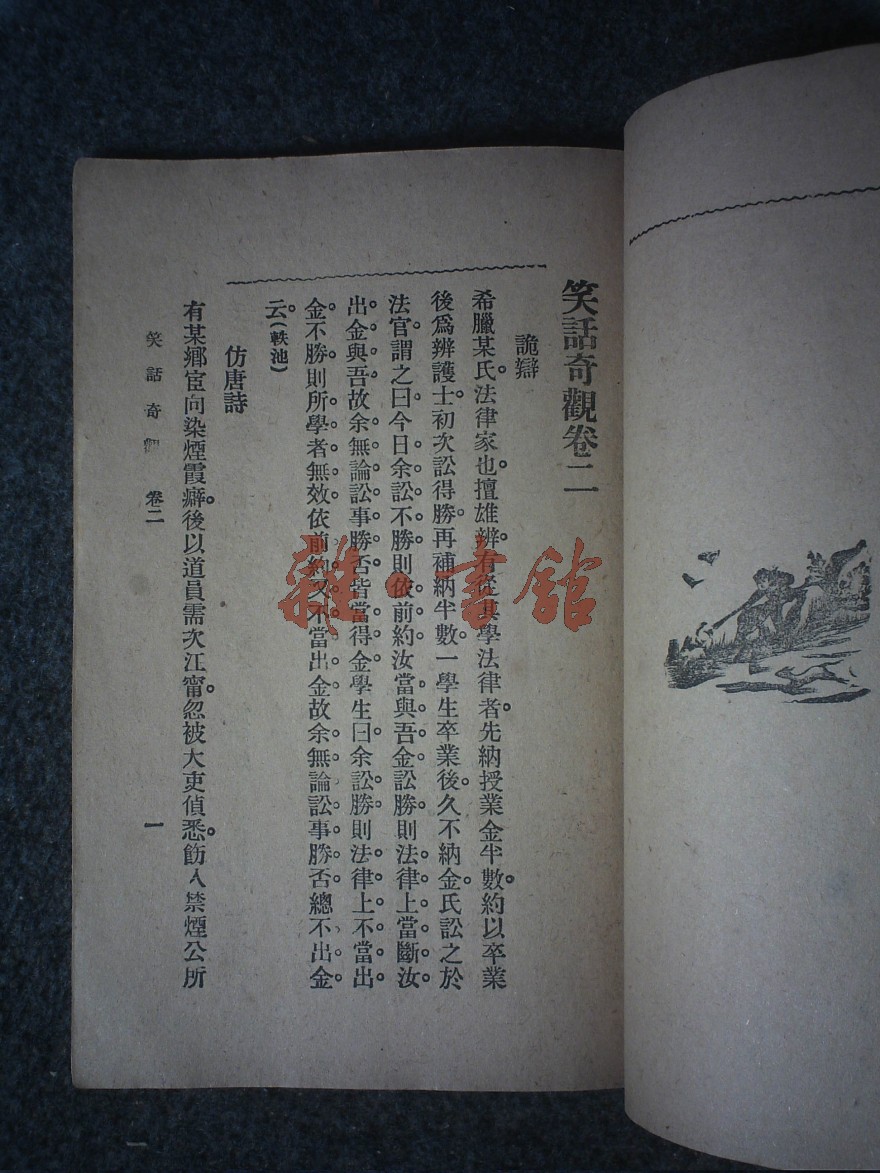 笑話奇觀卷二
詭辯
希臘某氏法律家也擅雄辨有從其學法律者先納授業金半數約以卒業
後爲辨護士初次訟得勝再補納半數一學生卒業後久不納金氏訟之於
法官謂之曰今日余訟不勝則依前約汝當與吾金訟勝則法律上當斷汝
出金與吾故余無論訟事勝否皆當得金學生曰余訟勝則法律上不當出
金不勝則所學者無效依前約又不當出金故余無論訟事勝否總不出金
云(軼池)
仿唐詩
有某鄉宦向染煙霞癖後以道員需次江甯忽被大吏偵悉飭入禁煙公所
笑話奇 卷二
一
雜·書館